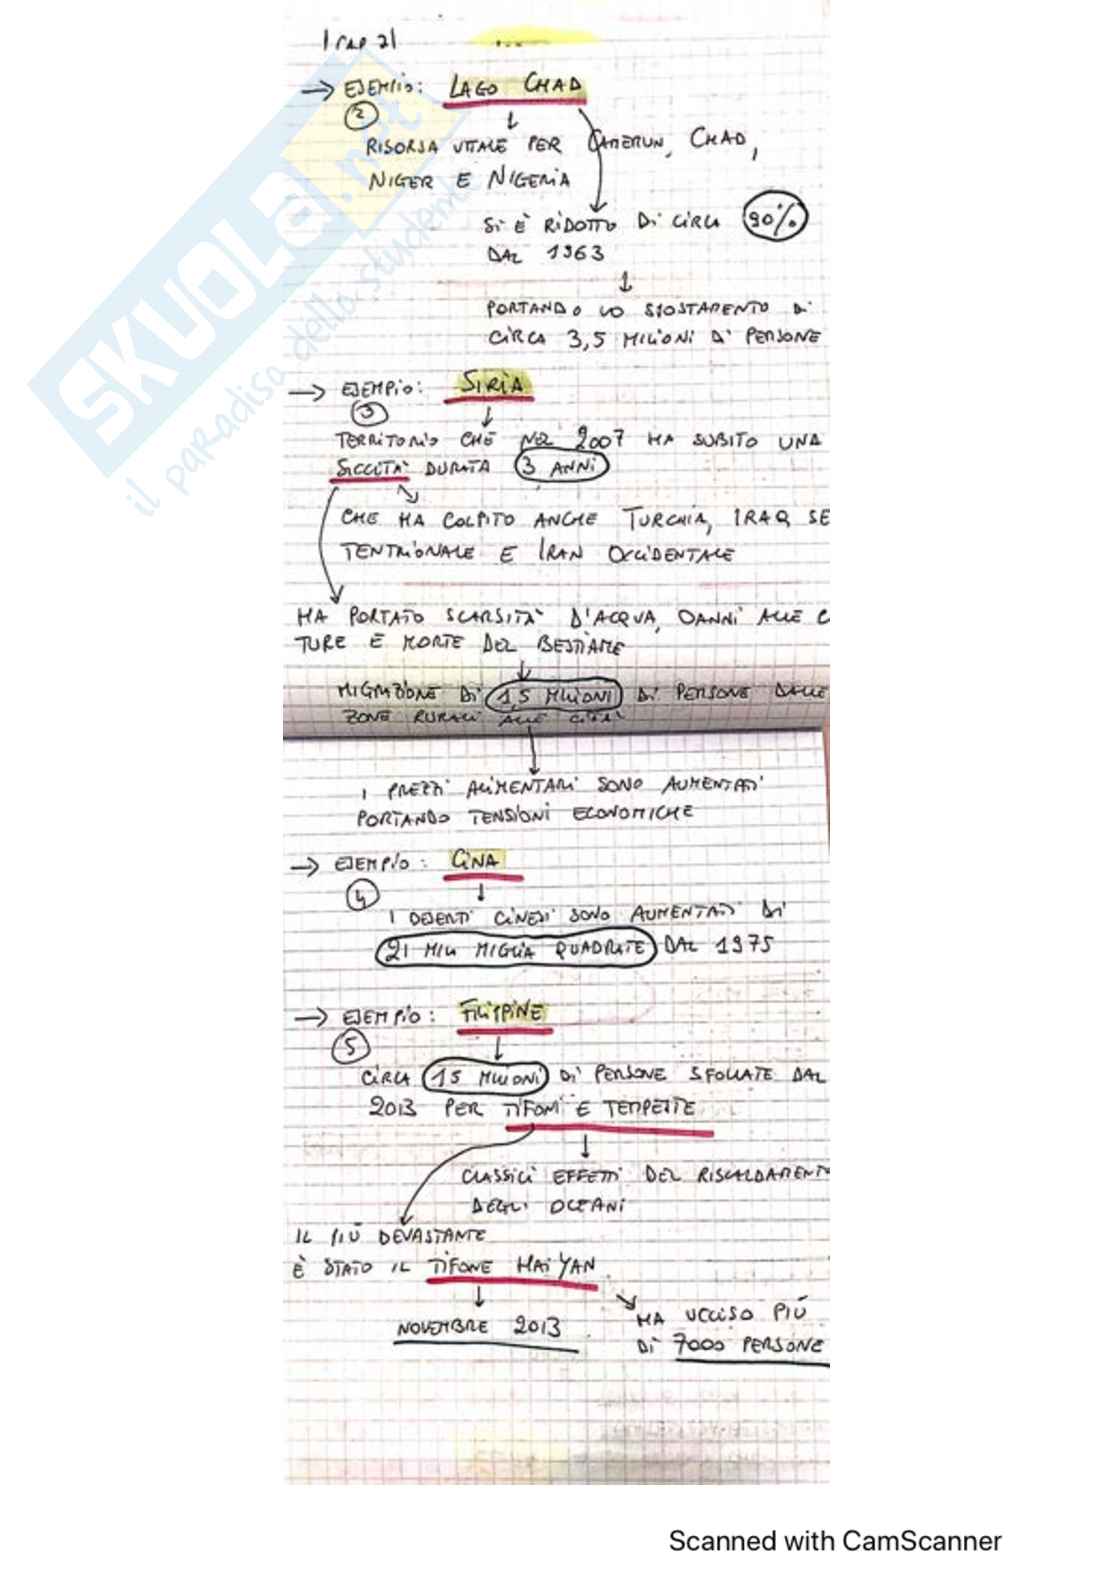 | CAP 2 |
→ ESEMPIO: LAGO CHAD
②
RISORSA VITALE PER CAMERUN, CHAD,
NIGER E NIGERIA
SI È RIDOTTO DI CIRCA 90%
DAL 1963
PORTANDO LO SPOSTAMENTO DI
CIRCA 3,5 MILIONI DI PERSONE
→ ESEMPIO: SIRIA
③
TERRITORIO CHE NEL 2007 HA SUBITO UNA
SICCITÀ DURATA 3 ANNI
CHE HA COLPITO ANCHE TURCHIA, IRAQ SE
TENTRIONALE E IRAN OCCIDENTALE
HA PORTATO SCARSITÀ D'ACQUA, DANNI ALLE C
TURE E MORTE DEL BESTIAME
MIGRAZIONE DI 1,5 MILIONI DI PERSONE DALLE
ZONE RURALI ALLE CITTÀ
I PREZZI ALIMENTARI SONO AUMENTATI
PORTANDO TENSIONI ECONOMICHE
→ ESEMPIO: CINA
④
I DESERTI CINESI SONO AUMENTATI DI
21 MILA MIGLIA QUADRATE DAL 1975
→ ESEMPIO: FILIPPINE
⑤
CIRCA 15 MILIONI DI PERSONE SFOLLATE DAL
2013 PER TIFONI E TEMPESTE
CLASSICI EFFETTI DEL RISCALDAMENT
DEGLI OCEANI
IL PIÙ DEVASTANTE
È STATO IL TIFONE HAIYAN
NOVEMBRE 2013
HA UCCISO PIÙ
DI 7000 PERSONE
SKUOLA.net
il paradiso dello studente
Scanned with CamScanner